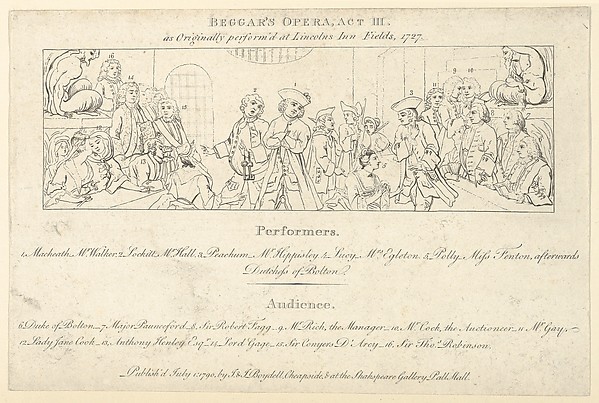 BEGGAR'S OPERA, ACT III.
as Originally perform'd at Lincolns Inn Fields, 1727.
16
14
15
2
1
3
11
9
10
13
8
5
Performers.
1, Macheath, Mr. Walker, 2, Lockitt, Mr. Hall, 3, Peachum, Mr. Hippisley, 4, Lucy, Mrs. Egleton, 5, Polly, Miss Fenton, afterwards
Dutchess of Bolton.
Audience.
6, Duke of Bolton, 7, Major Paunceford, 8, Sir Robert Fagg, 9, Mr. Rich, the Manager, 10, Mr. Cock, the Auctioneer, 11, Mr. Gay,
12, Lady Jane Cook, 13, Anthony Henley Esqr., 14, Lord Gage, 15, Sir Conyers D'Arcy, 16, Sir Thos. Robinson.
Publish'd July 1, 1790, by J. & J. Boydell, Cheapside, & at the Shakspeare Gallery Pall Mall.